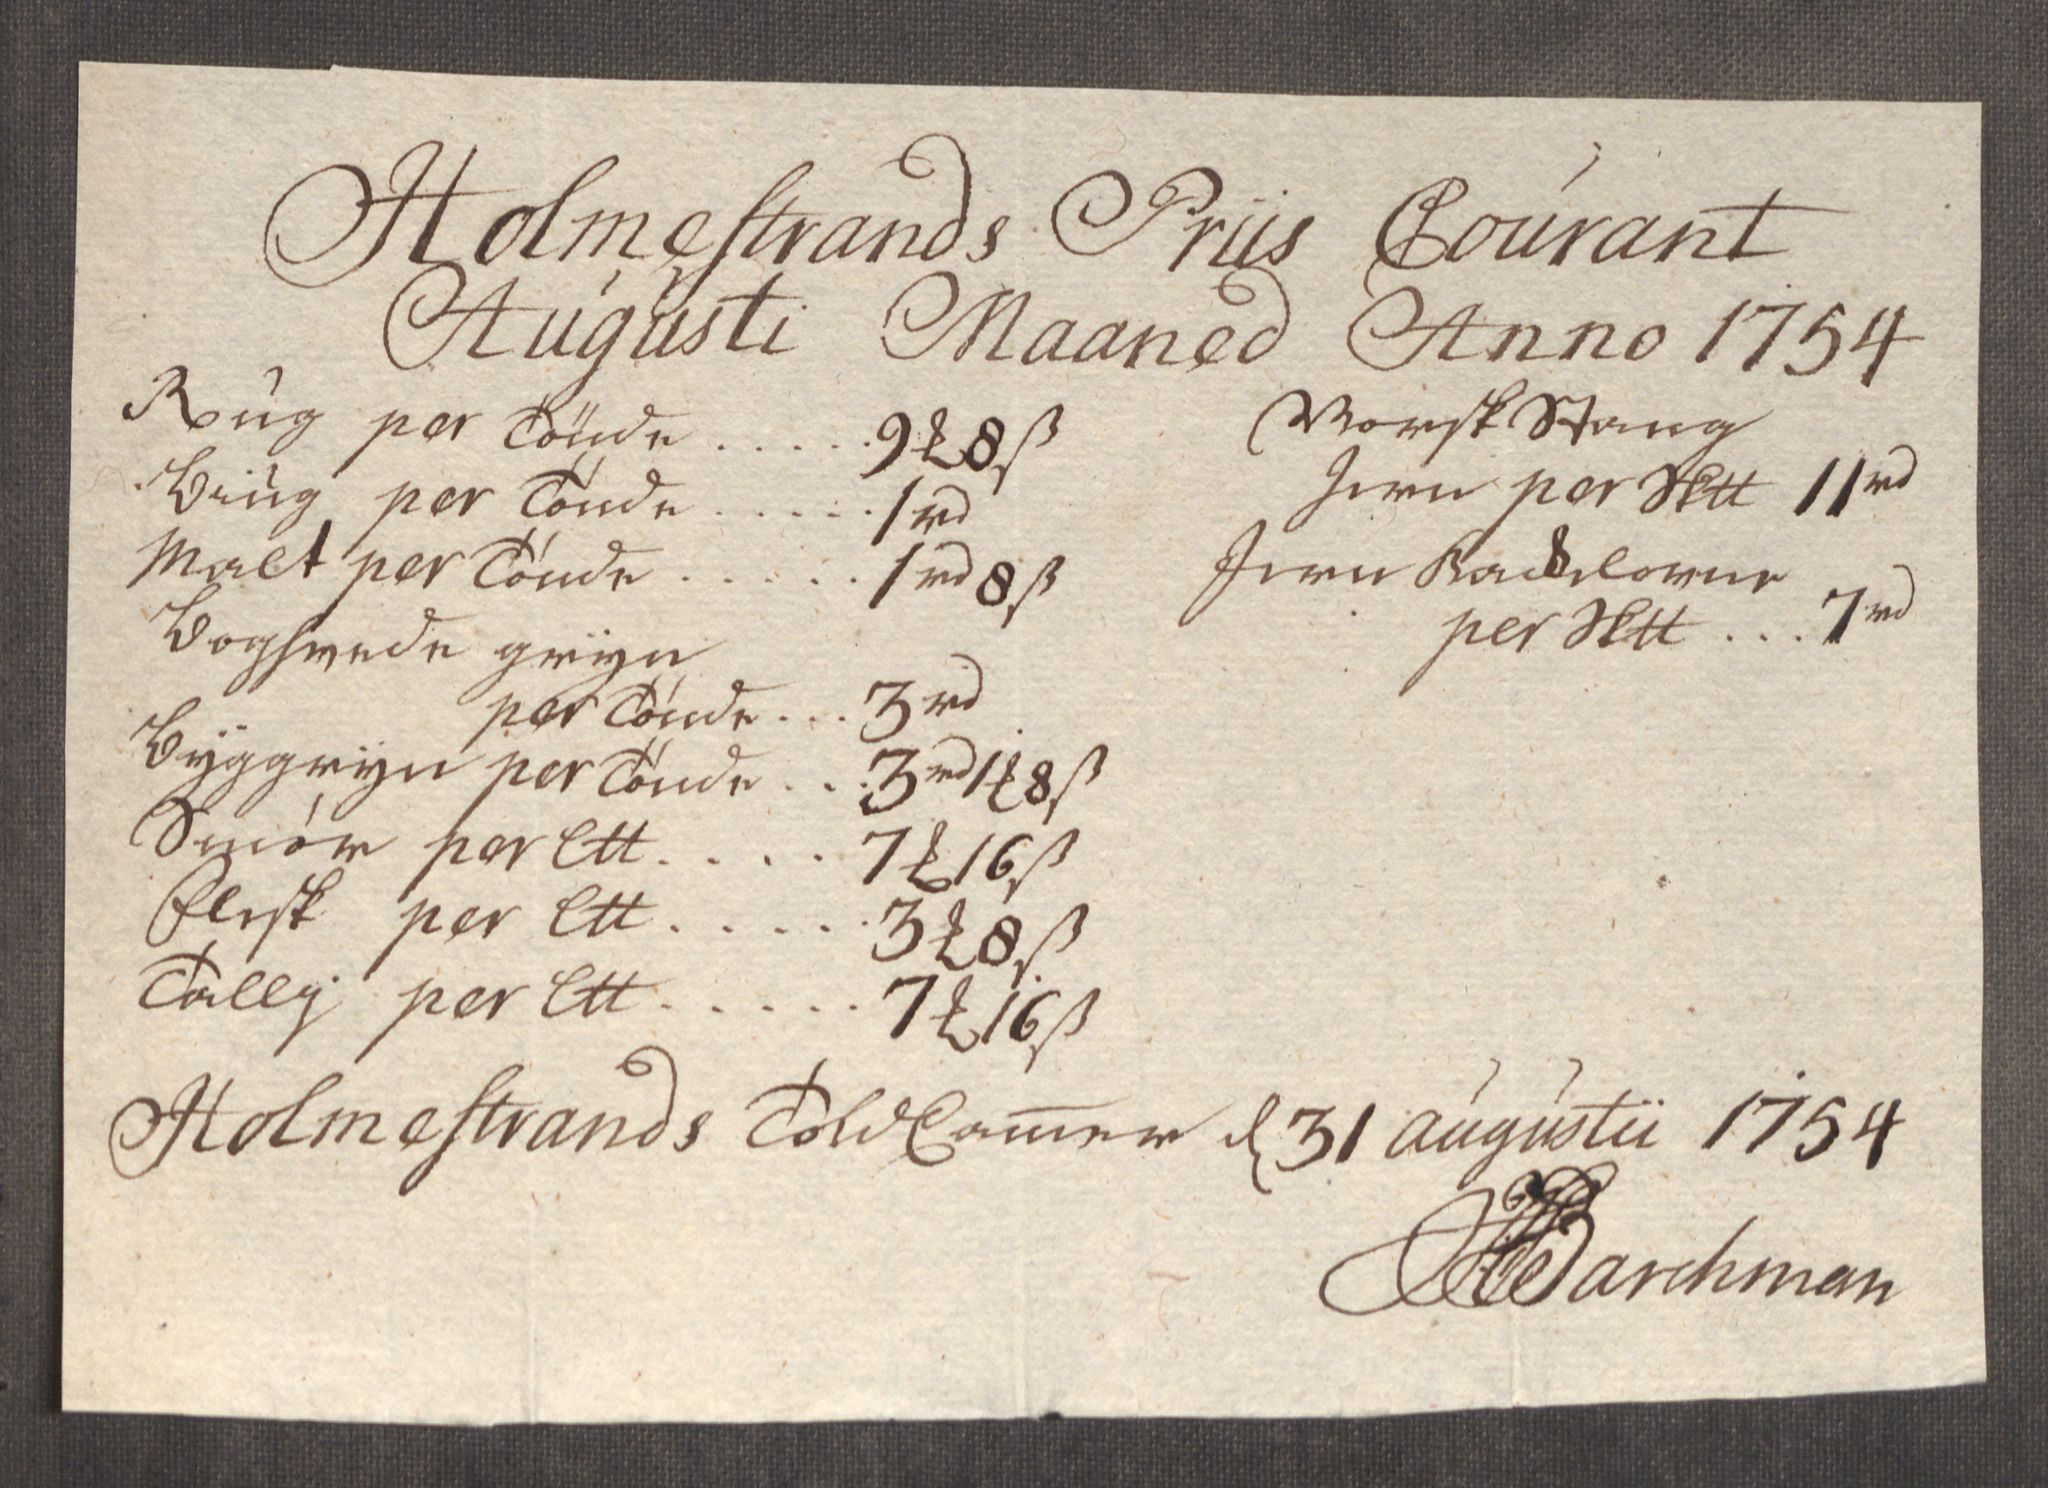 Holmestrands Priis Courant
Augusti Maaned Anno 1754
Rug per Tönde ..... 9 ℔ 8 ß
Biug per Tönde ..... 1 rd
Malt per Tönde ..... 1 rd 8 ß
Boghvede gryn
per Tönde ... 3 rd
Byggryn per Tönde ... 3 rd 1 ℔ 8 ß
Smör per Ctt .... 7 ℔ 16 ß
Flesk per Ctt ..... 3 ℔ 8 ß
Tallig per Ctt ..... 7 ℔ 16 ß
Norsk Stang
Jern per Sktt 11 rd
Jern Kackelovne
per Sktt ... 7 rd
Holmestrands Told Cammer d 31 augustii 1754
Barchman